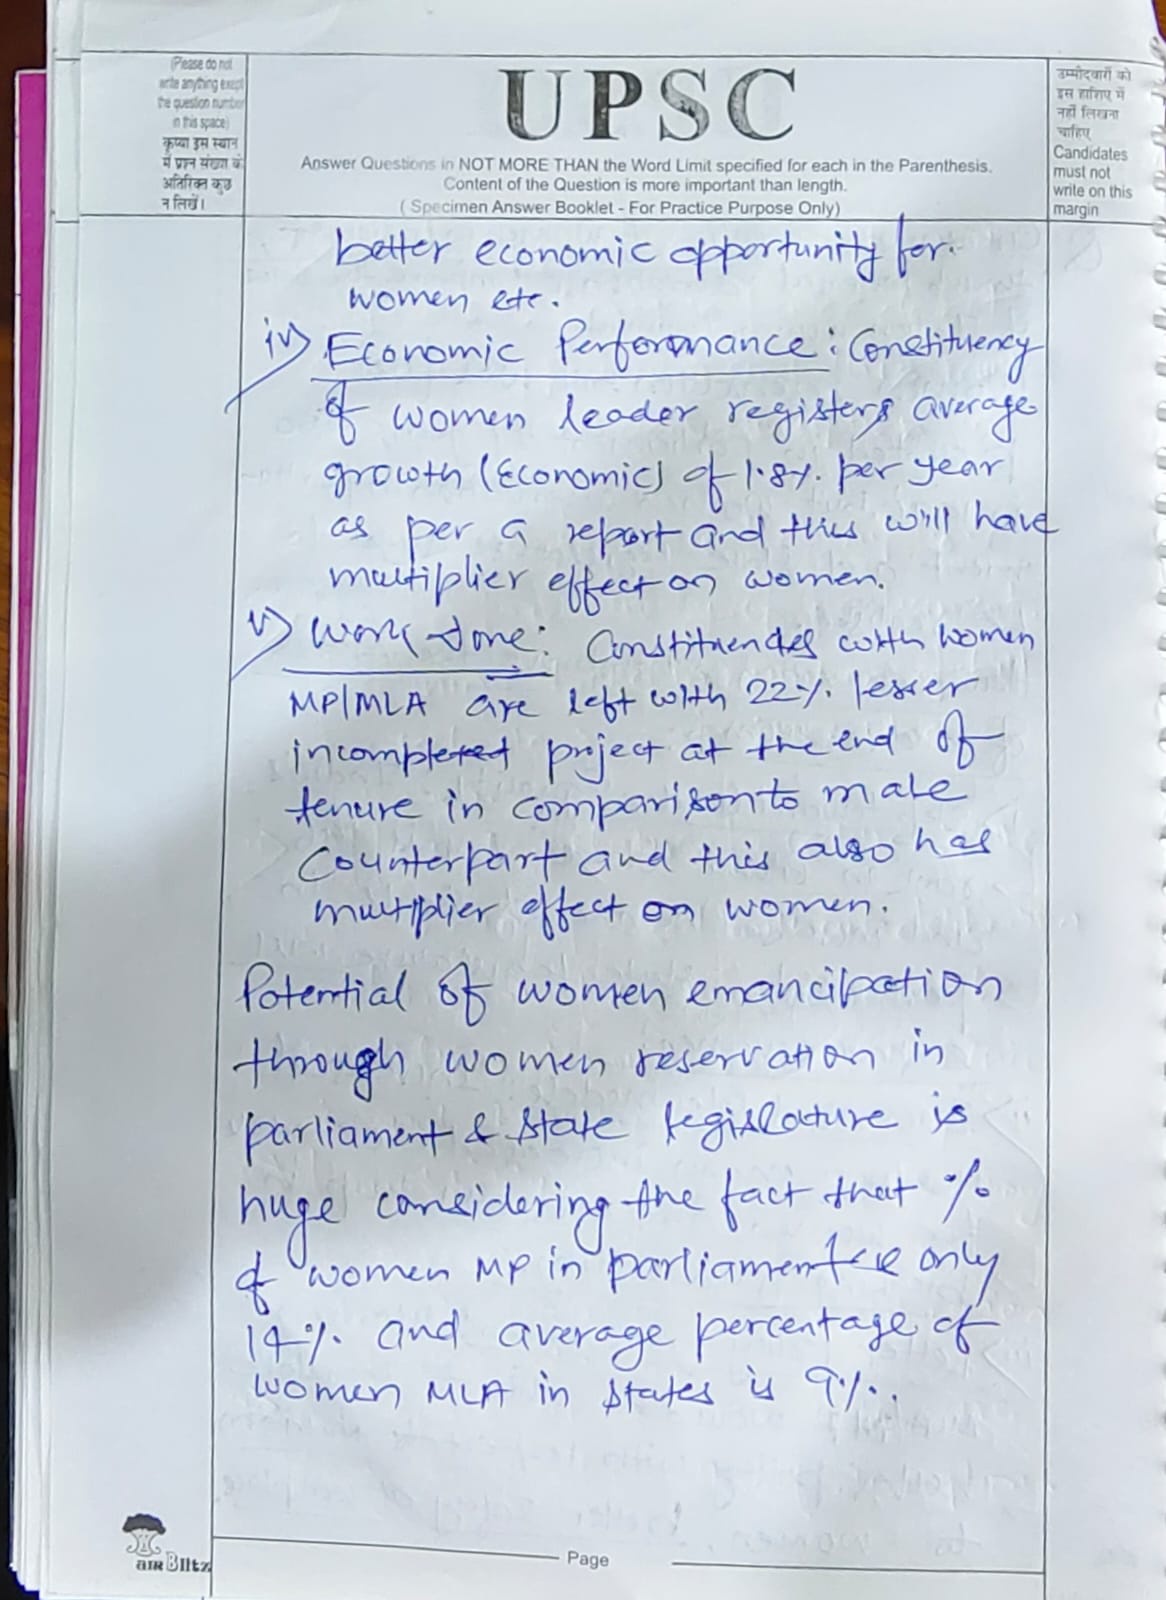 (Please do not
write anything except
the question number
in this space)
कृप्या इस स्थान
में प्रश्न संख्या के
अतिरिक्त कुछ
न लिखें।
UPSC
Answer Questions in NOT MORE THAN the Word Limit specified for each in the Parenthesis.
Content of the Question is more important than length.
( Specimen Answer Booklet - For Practice Purpose Only)
उम्मीदवारों को
इस हाशिए में
नहीं लिखना
चाहिए
Candidates
must not
write on this
margin
better economic opportunity for.
women etc.
iv) Economic Performance : Constituency
of women leader registers average
growth (Economic) of 1.8%. per year
as per a report and this will have
multiplier effect on women.
v) Work done: Constituencies with women
MP/MLA are left with 22%. lesser
incompleted project at the end of
tenure in comparison to male
Counterpart and this also has
multiplier effect on women.
Potential of women emancipation
through women reservation in
parliament & state legislature is
huge considering the fact that %
of women MP in parliament is only
14%. and average percentage of
women MLA in states is 9%.
AIR Blitz
Page